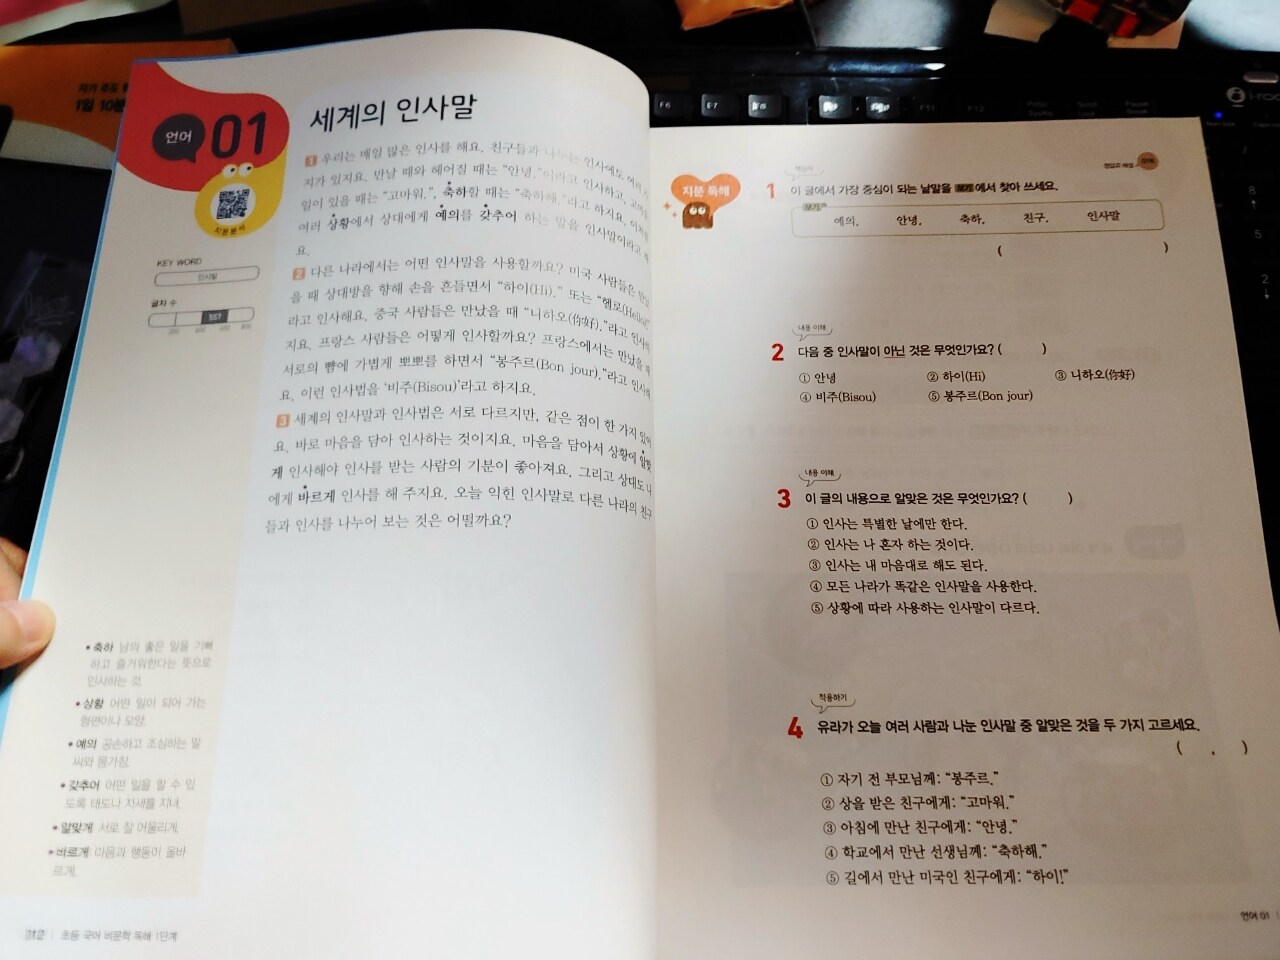 1일 10분
언어
01
지문분석
KEY WORD
인사말
글자 수
557
세계의 인사말
1 우리는 매일 많은 인사를 해요. 친구들과 나누는 인사에도 여러
지가 있지요. 만날 때와 헤어질 때는 "안녕."이라고 인사하고, 고마운
일이 있을 때는 "고마워.", 축하할 때는 "축하해."라고 하지요.
여러 상황에서 상대에게 예의를 갖추어 하는 말을 인사말이라고
요.
2 다른 나라에서는 어떤 인사말을 사용할까요? 미국 사람들은 만났
을 때 상대방을 향해 손을 흔들면서 "하이(Hi)." 또는 "헬로(Hello)."
라고 인사해요. 중국 사람들은 만났을 때 "니하오(你好)."라고 인사하
지요. 프랑스 사람들은 어떻게 인사할까요? 프랑스에서는 만났을 때
서로의 뺨에 가볍게 뽀뽀를 하면서 "봉주르(Bon jour)."라고 인사해
요. 이런 인사법을 '비주(Bisou)'라고 하지요.
3 세계의 인사말과 인사법은 서로 다르지만, 같은 점이 한 가지 있어
요. 바로 마음을 담아 인사하는 것이지요. 마음을 담아서 상황에 알맞
게 인사해야 인사를 받는 사람의 기분이 좋아져요. 그리고 상대도 나
에게 바르게 인사를 해 주지요. 오늘 익힌 인사말로 다른 나라의 친구
들과 인사를 나누어 보는 것은 어떨까요?
• 축하 남의 좋은 일을 기뻐
하고 즐거워한다는 뜻으로
인사하는 것.
• 상황 어떤 일이 되어 가는
형편이나 모양.
• 예의 공손하고 조심하는 말
씨와 몸가짐.
• 갖추어 어떤 일을 할 수 있
도록 태도나 자세를 지녀.
• 알맞게 서로 잘 어울리게.
• 바르게 마음과 행동이 올바
르게.
초등 국어 비문학 독해 1단계
F6 F7 F8 F11 F12
지문 독해
1 이 글에서 가장 중심이 되는 낱말을 보기 에서 찾아 쓰세요.
보기
예의, 안녕, 축하, 친구, 인사말
( )
내용 이해
2 다음 중 인사말이 아닌 것은 무엇인가요? ( )
① 안녕 ② 하이(Hi) ③ 니하오(你好)
④ 비주(Bisou) ⑤ 봉주르(Bon jour)
내용 이해
3 이 글의 내용으로 알맞은 것은 무엇인가요? ( )
① 인사는 특별한 날에만 한다.
② 인사는 나 혼자 하는 것이다.
③ 인사는 내 마음대로 해도 된다.
④ 모든 나라가 똑같은 인사말을 사용한다.
⑤ 상황에 따라 사용하는 인사말이 다르다.
적용하기
4 유라가 오늘 여러 사람과 나눈 인사말 중 알맞은 것을 두 가지 고르세요.
( , )
① 자기 전 부모님께: "봉주르."
② 상을 받은 친구에게: "고마워."
③ 아침에 만난 친구에게: "안녕."
④ 학교에서 만난 선생님께: "축하해."
⑤ 길에서 만난 미국인 친구에게: "하이!"
언어 01